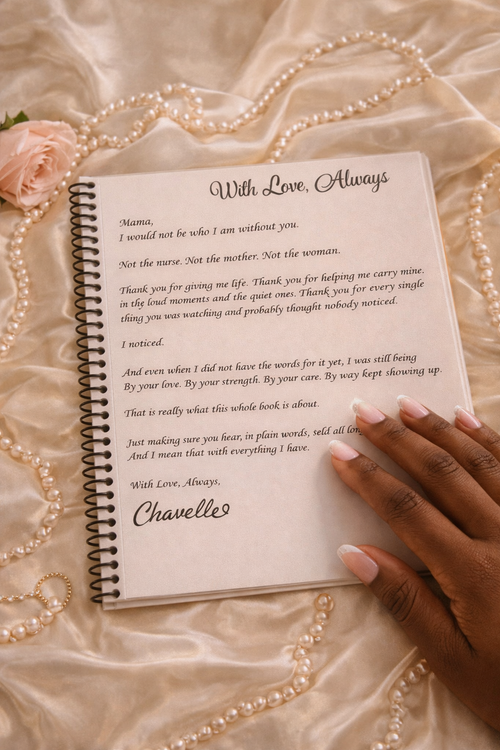 With Love, Always
Mama,
I would not be who I am without you.
Not the nurse. Not the mother. Not the woman.
Thank you for giving me life. Thank you for helping me carry mine.
in the loud moments and the quiet ones. Thank you for every single
thing you was watching and probably thought nobody noticed.
I noticed.
And even when I did not have the words for it yet, I was still being
By your love. By your strength. By your care. By way kept showing up.
That is really what this whole book is about.
Just making sure you hear, in plain words, seld all
And I mean that with everything I have.
With Love, Always,
Chavelle